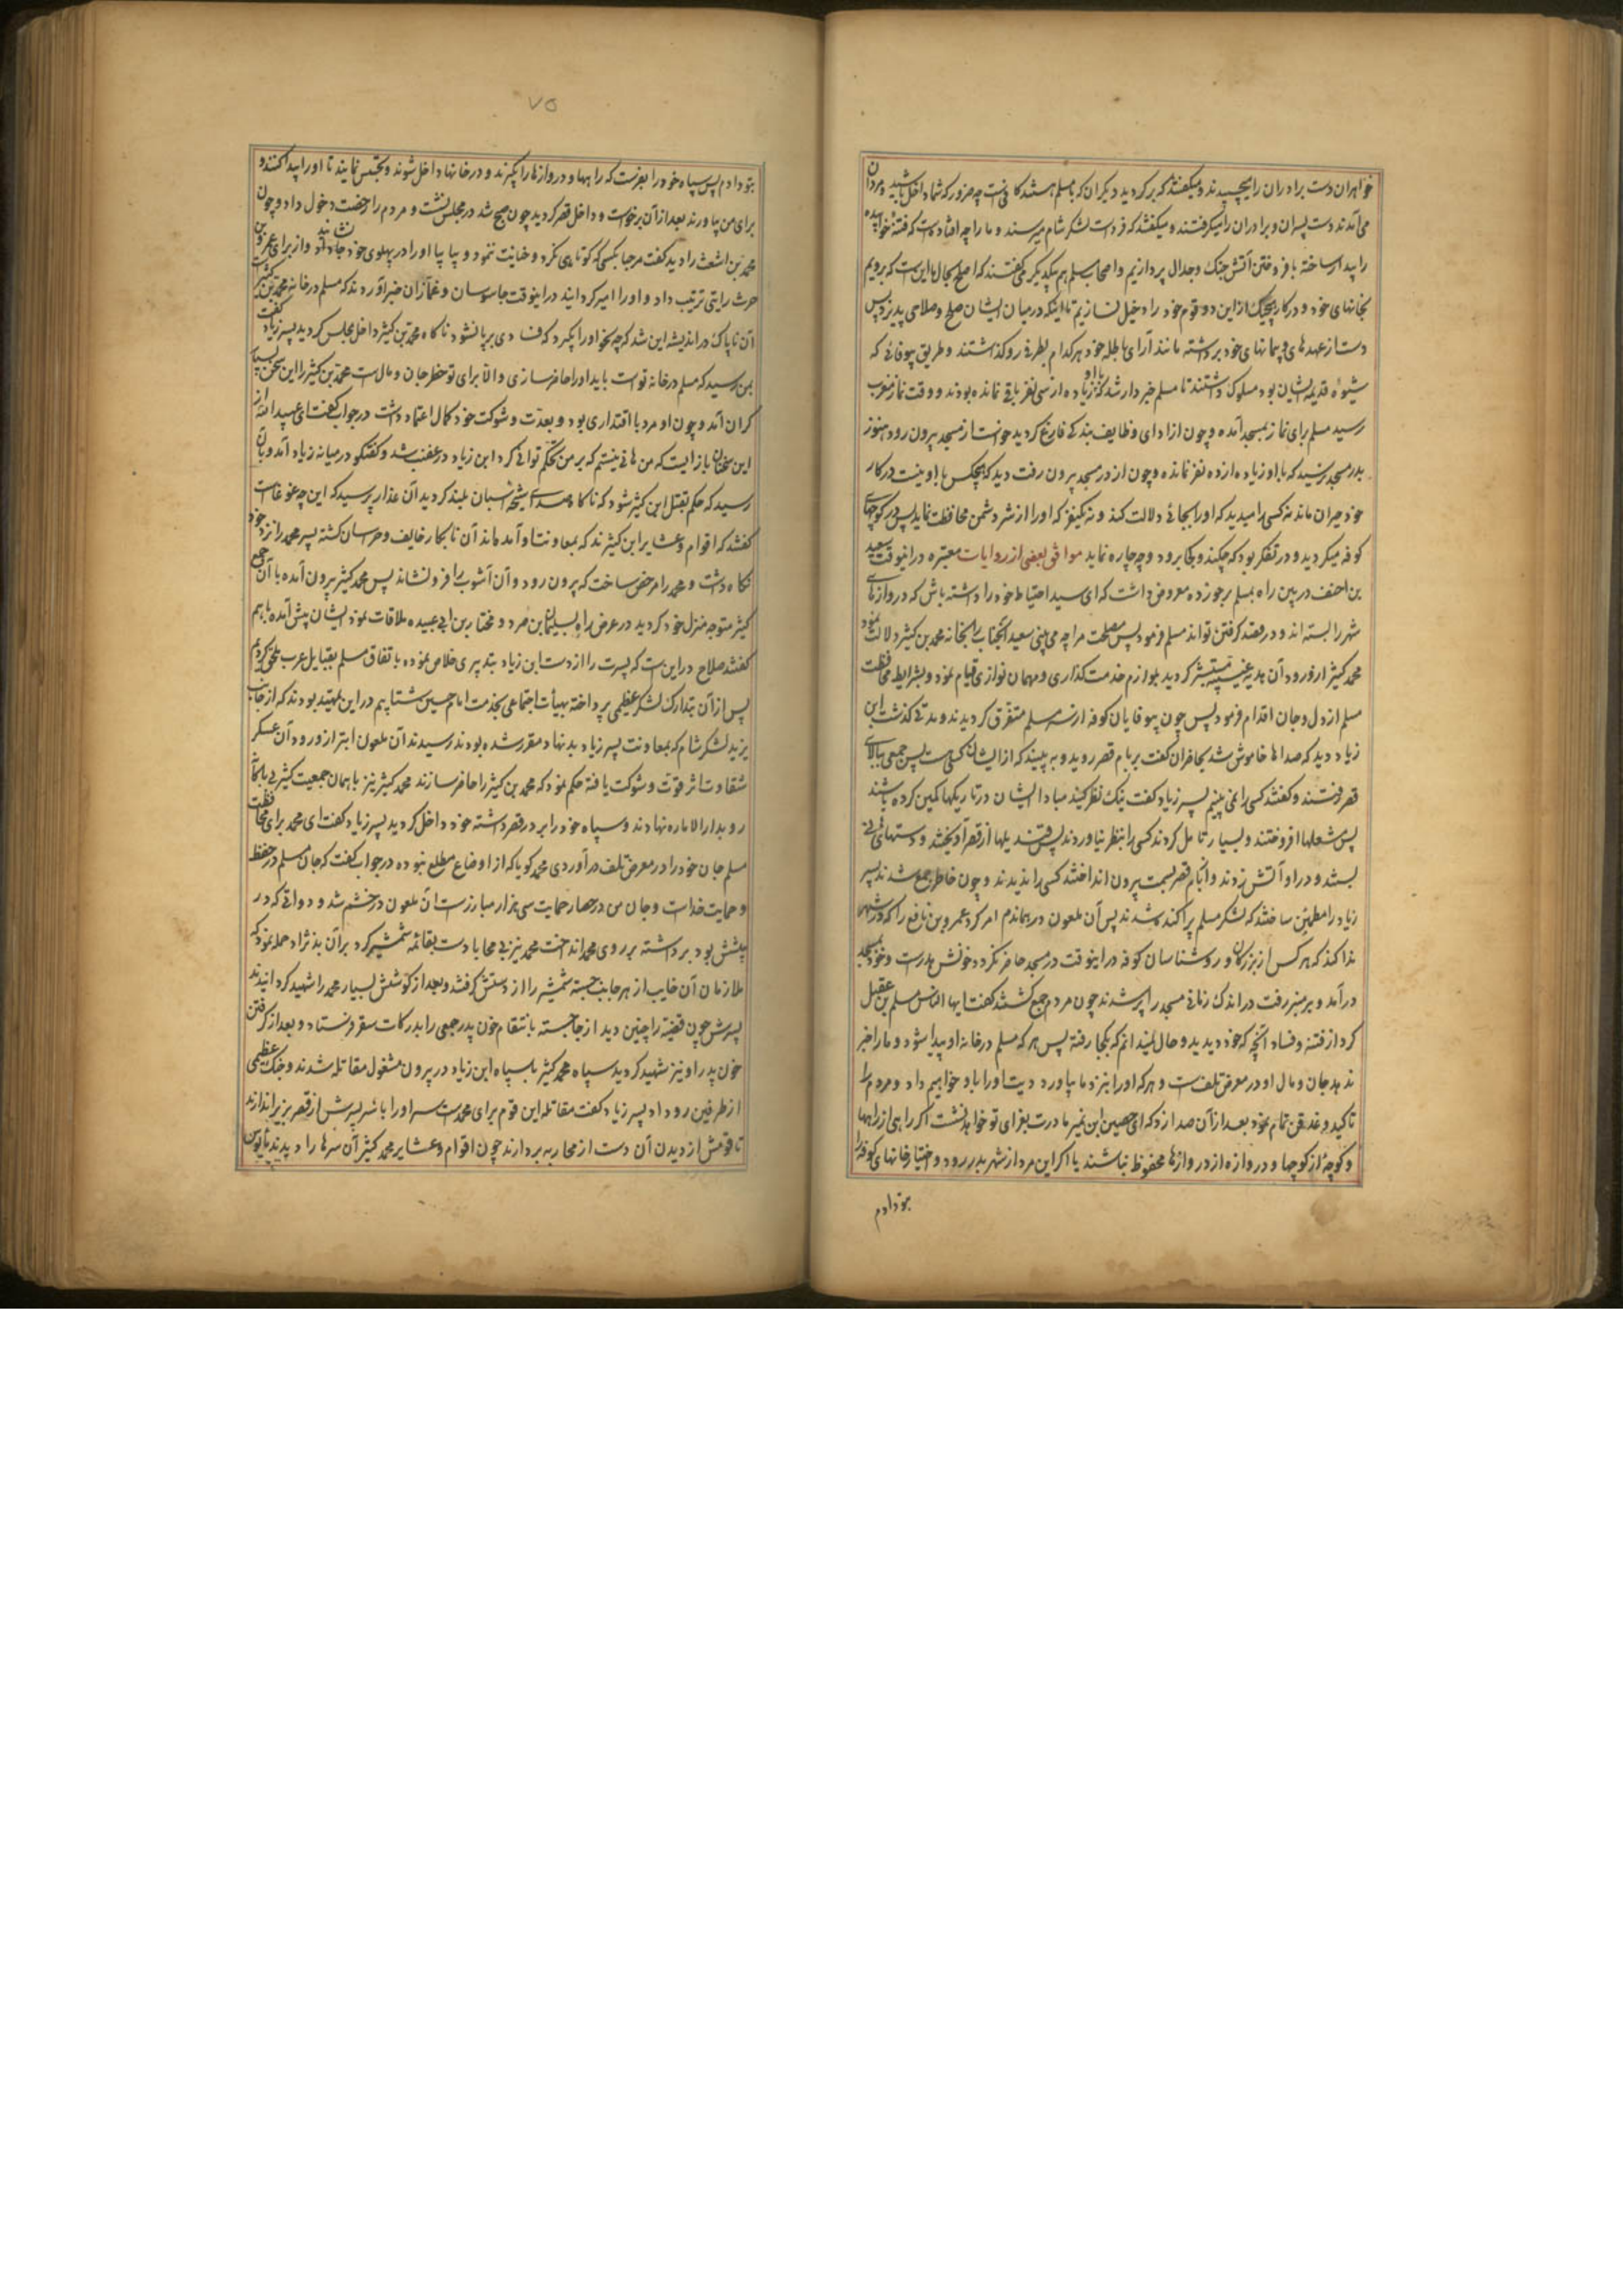 خواهران دست برادران را می‌چسپیدند و میگفتند که برگردید دیگران که با مسلم هستند کافیست چه ضرور که شما داخل باشید و مردان
می‌آمدند دست پسران و برادران را میگرفتند و میگفتند که فرداست لشکر شام میرسند و ما را چه افتاده است که فتنهٔ خوابیده
را پیدا ساخته بافروختن آتش جنک و جدال پردازیم واصحاب مسلم هم بیکدیگر می گفتند که اصلح بحال ما این است که برویم
بخانهای خود و در کار هیچیک از این دو قوم خود را دخیل نسازیم تا اینکه در میان ایشان صلح و صلاحی پدید آید پس
دست از عهدهای و پیمانهای خود برداشته مانند آرای باطلهٔ خود هر کدام بطرفی رو گذاشتند و طریق بیوفائی که
شیوهٔ قدیمه ایشان بود مسلوک داشتند تا مسلم خبردار شد که با او زیاده از سی نفر باقی نمانده بودند و وقت نماز مغرب
رسید مسلم برای نماز بمسجد آمده و چون از ادای وظایف بندکی فارغ کردید خواست از مسجد بیرون رود هنوز
بدر مسجد نرسید که با او زیاده از ده نفر نمانده و چون از در مسجد بیرون رفت دید که هیچکس با او نیست در کار
خود حیران مانده نه کسی را میدید که او را بجائی دلالت کند و نه یکنفر که او را از شر دشمن محافظت نماید پس در کوچهای
کوفه میکردید و در تفکر بود که چکند و بکجا برود و چه چاره نماید موافق بعضی از روایات معتبره در اینوقت سعید
بن احنف در بین راه بمسلم برخورده معروض داشت که ای سید احتیاط خود را داشته باش که دروازهای
شهر را بسته اند و در قصد کرفتن تواند مسلم فرمود پس مصلحت مرا چه می بینی سعید آنجناب را بخانه محمد بن کثیر دلالت نمود
محمد کثیر از ورود آن هدیه غیبیه مستبشر کردید بلوازم خدمت کذاری و مهمان نوازی قیام نمود و بشرایط محافظت
مسلم از دل و جان اقدام فرمود پس چون بیوفایان کوفه از سر مسلم متفرق کردیدند و مدتی کذشت ابن
زیاد دید که صداها خاموش شد بحافران کفت بربام قصر روید و به بینید که از ایشان کسی هست پس جمعی ببالای
قصر رفتند و کفتند کسی را نمی بینیم پسر زیاد کفت نیک نظر کنید مبادا ایشان در تاریکیها کمین کرده باشند
پس شعلها افروختند و بسیار تامل کردند کسی را بنظر نیاوردند پس قندیلها از قصر آویختند و دستهای نی
بستند و در او آتش زدند و از بام قصر بسمت بیرون انداختند کسی را ندیدند و چون خاطر جمع شدند پسر
زیاد را مطمئن ساختند که لشکر مسلم پراکنده شدند پس آن ملعون در همان دم امر کرد عمرو بن نافع را که در شهر
ندا کند که هر کس از بزرکان و روشناسان کوفه در اینوقت در مسجد حاضر نکردد خونش هدرست و خود بمسجد
درآمد و بر منبر رفت در اندک زمانی مسجد را پر شدند چون مردم جمع کشتند کفت ایها الناس مسلم بن عقیل
کرد از فتنه و فساد آنچه که خود دیدید و حال نمیدانم که بکجا رفته پس هر که مسلم در خانه او پیدا شود و ما را خبر
ندهد جان و مال او در معرض تلف است و هر که او را بنزد ما بیاورد دیت او را باو خواهیم داد و مردم را
تاکید و غدقن تمام نمود بعد از آن صدا زد که ای حصین ابن نمیر مادرت بعزای تو خواهد نشست اکر راهی از راهها
و کوچهٔ از کوچها و دروازه از دروازها محفوظ نباشند یا اکر این مرد از شهر بدر رود و اختیار خانهای کوفه را
بتو دادم
۷۵
بتو دادم پس سپاه خود را بفرست که راهها و دروازها را بگیرند و در خانها داخل شوند و تجسس نمایند تا او را پیدا کنند و
برای من بیاورند بعد از آن برخواست و داخل قصر کردید چون صبح شد در مجلس نشست و مردم را رخصت دخول داد و چون
محمد بن اشعث را دید کفت مرحبا بکسی که کوتاهی نکرد و خیانت ننمود و بیا بیا او را در پهلوی خود جا داد نشاند و از برای عمرو بن
حرث رایتی ترتیب داد و او را امیر کردانید در اینوقت جاسوسان و غمازان خبر آوردند که مسلم در خانه محمد بن کثیر است
آن ناپاک در اندیشه این شد که چه نحو او را بگیرد که فسادی برپا نشود ناکاه محمد بن کثیر داخل مجلس کردید پسر زیاد کفت
بمن رسید که مسلم در خانه تو است باید او را حاضر سازی والا برای تو خطر جان و مال است محمد بن کثیر را این سخن بسیار
کران آمد و چون او مرد با اقتداری بود و بعدت و شوکت خود کمال اعتماد داشت در جواب کفت ای عبیدالله از
این سخنان باز ایست که من هانی نیستم که بر من تحکم توانی کرد ابن زیاد در غضب شد و کفتکو در میانه زیاد آمد و بآن
رسید که حکم بقتل ابن کثیر شود که ناکاه صدای شیحه اسبان بلند کردید آن غدار پرسید که این چه غوغاست
کفتند که اقوام و عشایر ابن کثیرند که بمعاونت او آمده‌اند آن نابکار خایف و هراسان کشته پسر محمد را نزد خود
نکاه داشت و محمد را مرخص ساخت که بیرون رود و آن آشوب را فرو نشاند پس محمد کثیر بیرون آمده با آن جمع
کثیر متوجه منزل خود کردید در عرض راه سلیمان بن صرد و مختار بن ابی عبیده ملاقات نمود ایشان پیش آمده باهم
کفتند صلاح در این است که پسرت را از دست ابن زیاد بتدبیری خلاص نموده باتفاق مسلم بقبایل عرب ملحق کردیم
پس از آن بتدارک لشکر عظیمی پرداخته بهیأت اجتماعی بخدمت امام حسین شتابیم در این تمهید بودند که از جانب
یزید لشکر شام که بمعاونت پسر زیاد بدنهاد مقرر شده بودند رسیدند آن ملعون ابتر از ورود آن عسکر
شقاوت اثر قوت و شوکت یافته حکم نمود که محمد بن کثیر را حاضر سازند محمد کثیر نیز با همان جمعیت کثیر
رو بدارالاماره نهادند و سپاه خود را بر در قصر داشته خود داخل کردید پسر زیاد کفت ای محمد برای محافظت
مسلم جان خود را در معرض تلف درآوردی محمد کویا که از اوضاع مطلع نبوده در جواب کفت که جان مسلم در حفظ
و حمایت خداست و جان من در حصار حمایت سی هزار مبارزست آن ملعون در خشم شد و دواتی که در
پیشش بود برداشته بر روی محمد انداخت محمد نیز بی محابا دست بقائمه شمشیر کرد بر آن بدنژاد حمله نمود که
ملازمان آن خایب از هر جانب جسته شمشیر را از دستش کرفتند و بعد از کوشش بسیار محمد را شهید کردانیدند
پسرش چون قضیه را چنین دید از جا جسته بانتقام خون پدر جمعی را بدرکات سقر فرستاد و بعد از کرفتن
خون پدر او نیز شهید کردید سپاه محمد کثیر با سپاه ابن زیاد در بیرون مشغول مقاتله شدند و جنک عظیمی
از طرفین رو داد پسر زیاد کفت مقاتله این قوم برای محمد است سر او را با سر پسرش از قصر بزیر اندازند
تا قومش از دیدن آن دست از محاربه بردارند چون اقوام و عشایر محمد کثیر آن سرها را دیدند مأیوس